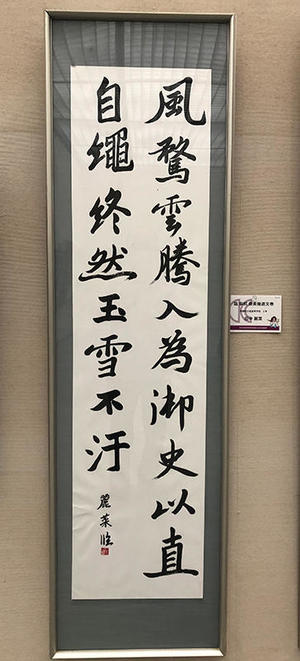 風騖雲騰入為御史以直
自繩終然玉雪不汙
麗菜臨